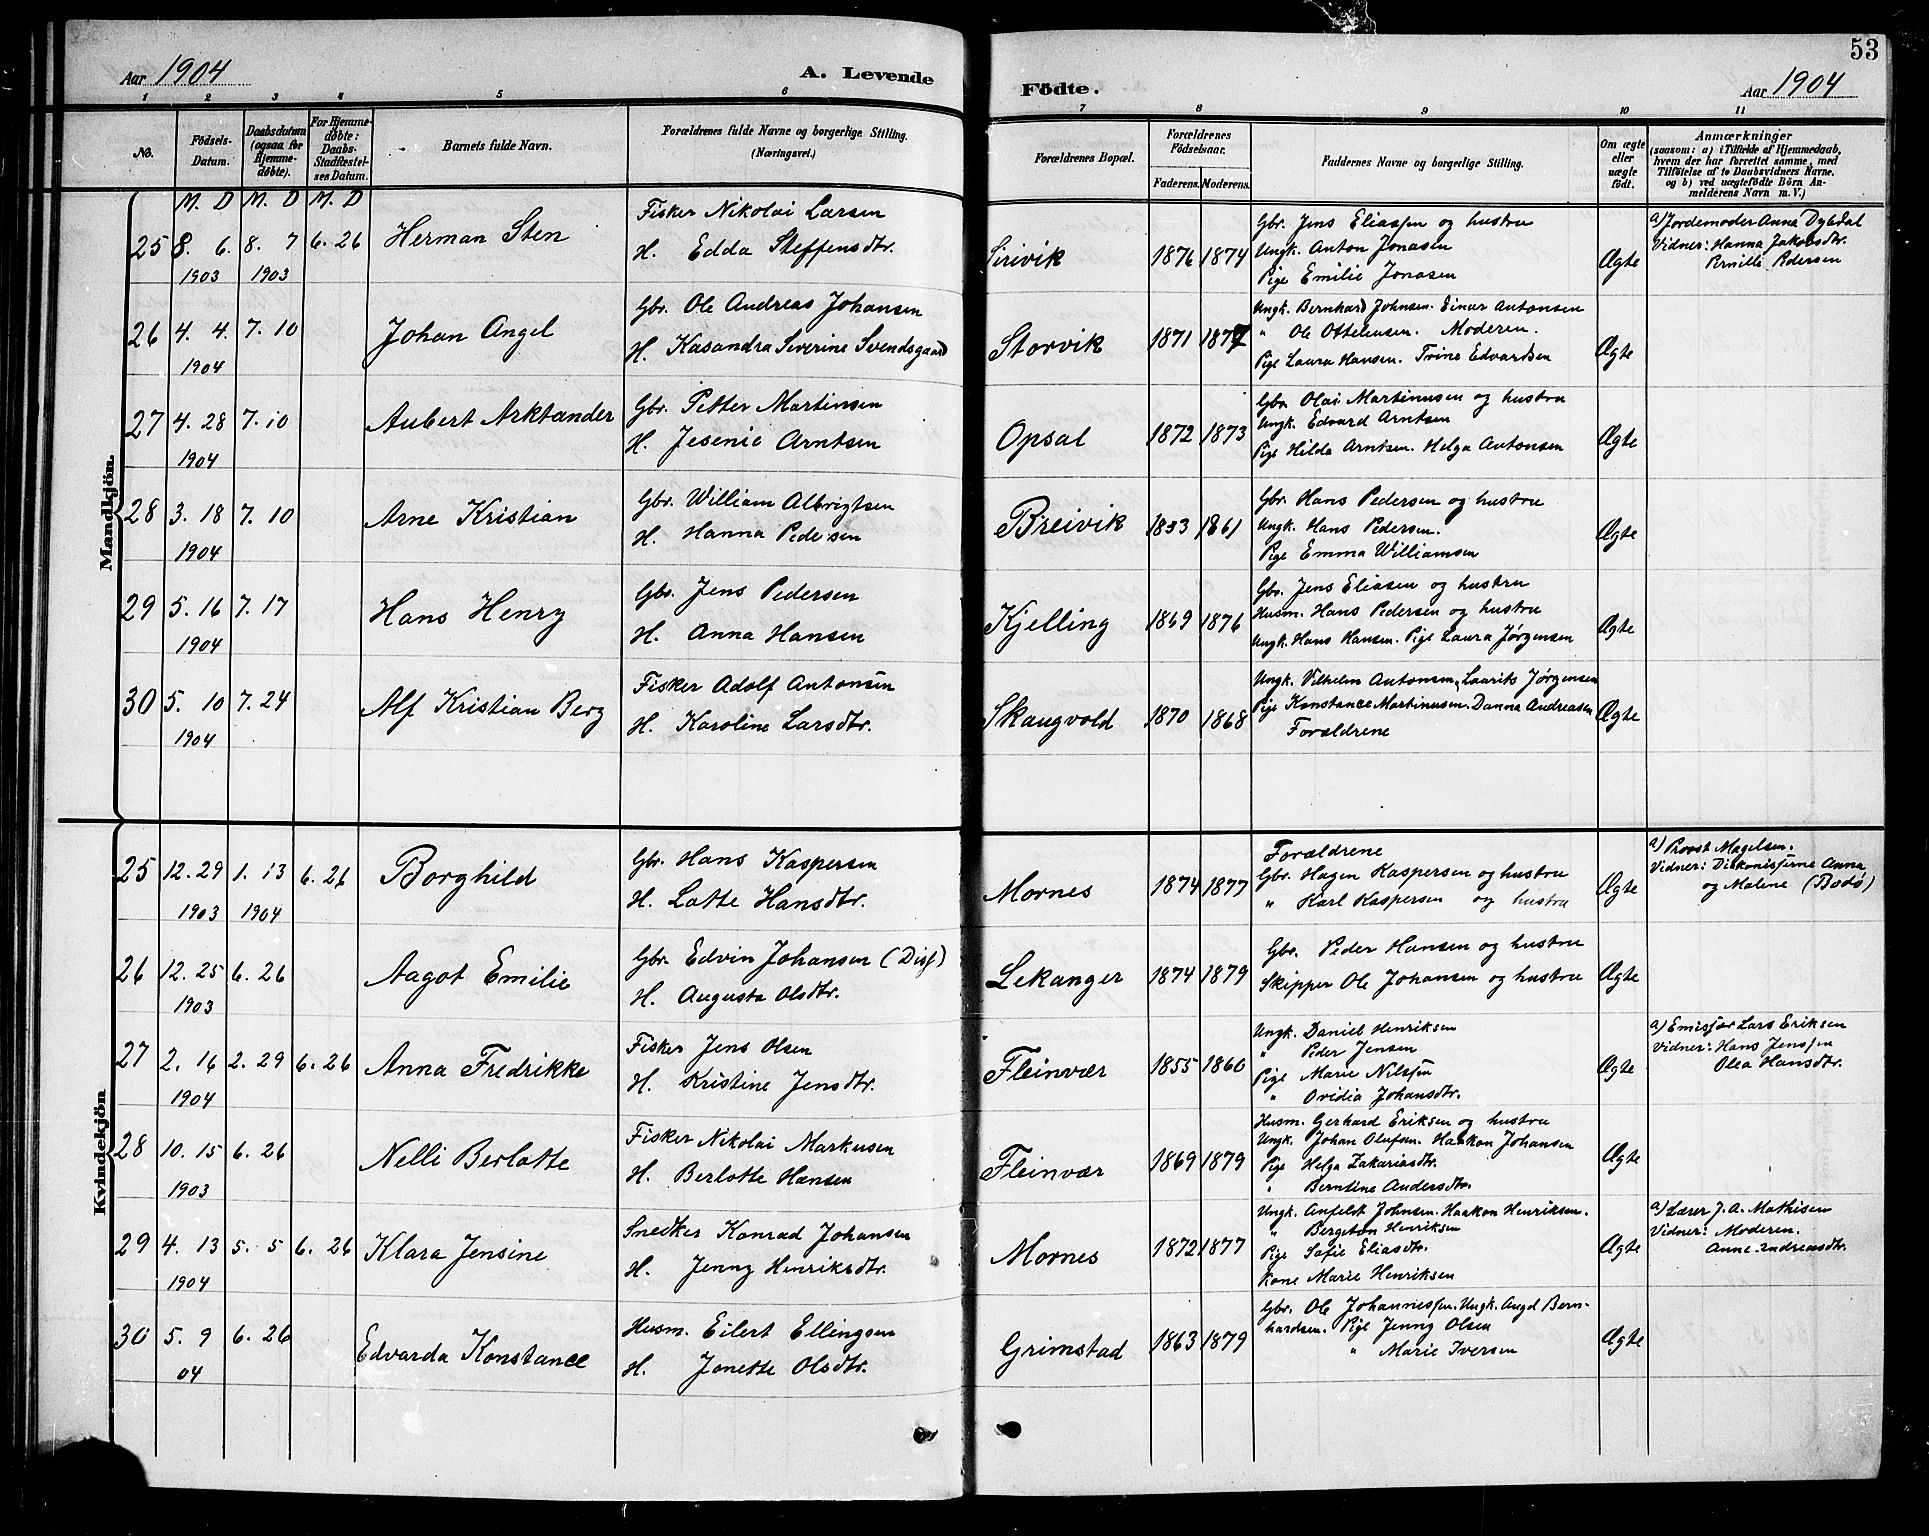 53
Aar 1904
A. Levende
Födte.
Aar 1904
1 2 3 4 5 6 7 8 9 10 11
No.
Födsels-Datum.
Daabsdatum (ogsaa for Hjemmedöbte).
For Hjemmedöbte: Daabs-Stadfæstelses Datum.
Barnets fulde Navn.
Forældrenes fulde Navne og borgerlige Stilling. (Næringsvei.)
Forældrenes Bopæl.
Forældrenes Födselsaar.
Faderens. Moderens.
Faddernes Navne og borgerlige Stilling.
Om ægte eller uægte födt.
Anmærkninger
(saasom: a) i Tilfælde af Hjemmedaab,
hvem der har forrettet samme, med
Tilföielse af to Daabsvidners Navne,
og b) ved uægtefödte Börn An-
melderens Navn m. V.)
M. D M. D M. D
Mandkjön.
25 8. 6. 1903 8. 7 1903 6. 26
Herman Sten
Fisker Nikolai Larsen
H. Edda Steffensdtr.
Sirivik 1876 1874
Gbr. Jens Eliassen og hustru
Ungk. Anton Jonasen
Pige Emilie Jonasen
Ægte
a) Jordemoder Anna Dybdal
Vidner: Hanna Jakobsdtr.
Pernille Pedersen
26 4. 4. 1904 7. 10
Johan Angel
Gbr. Ole Andreas Johansen
H. Kasandra Severine Svendsgaard
Storvik 1871 1877
Ungk. Bernhard Johnsen. Einar Antonsen
" Ole Ottelensen. Moderen.
Pige Laura Hansen. Trine Edvardsen
Ægte
27 4. 28 1904 7. 10
Aubert Arktander
Gbr. Petter Martinsen
H. Jesenie Arntsen
Opsal 1872 1873
Gbr. Olai Martinusen og hustru
Ungk. Edvard Arntsen
Pige Hilda Arntsen. Helga Antonsen
Ægte
28 3. 18 1904 7. 10
Arne Kristian
Gbr. William Albrigtsen
H. Hanna Pedersen
Breivik 1853 1861
Gbr. Hans Pedersen og hustru
Ungk. Hans Pedersen.
Pige Emma Williamsen
Ægte
29 5. 16 1904 7. 17
Hans Henry
Gbr. Jens Pedersen
H. Anna Hansen
Kjelling 1869 1876
Gbr. Jens Eliasen og hustru
Husm. Hans Pedersen og hustru
Ungk. Hans Hansen. Pige Laura Jørgensen
Ægte
30 5. 10 1904 7. 24
Alf Kristian Berg
Fisker Adolf Antonsen
H. Karoline Larsdtr.
Skaugvold 1870 1868
Ungk. Vilhelm Antonsen, Laurits Jørgensen
Pige Konstance Martinusen. Danna Andreasen
Forældrene
Ægte
Kvindekjön
25 12. 29 1903 1. 13 1904 6. 26
Borghild
Gbr. Hans Kaspersen
H. Lotte Hansdtr.
Mornes 1874 1877
Forældrene
Gbr. Hagen Kaspersen og hustru
" Karl Kaspersen og hustru
Ægte
a) Provst Magelsen.
Vidner: Diakonisserne Anna
og Malene (Bodø)
26 12. 25 1903 6. 26
Aagot Emilie
Gbr. Edvin Johansen (Diss)
H. Augusta Olsdtr.
Lekanger 1874 1879
Gbr. Peder Hansen og hustru
Skipper Ole Johansen og hustru
Ægte
27 2. 16 1904 2. 29 6. 26
Anna Fredrikke
Fisker Jens Olsen
H. Kristine Jensdtr.
Fleinvær 1855 1860
Ungk. Daniel Henriksen
" Peder Jensen
Pige Marie Nilssen
" Ovidia Johansdtr.
Ægte
a) Emissær Lars Eriksen
Vidner: Hans Jenssen
Olea Hansdtr.
28 10. 15 1903 6. 26
Nelli Berlotte
Fisker Nikolai Markusen
H. Berlotte Hansen
Fleinvær 1869 1879
Husm. Gerhard Eriksen og hustru
Ungk. Johan Olufsen. Haakon Johansen
Pige Helga Zakariasdtr.
" Berntine Andersdtr.
Ægte
29 4. 13 1904 5. 5 6. 26
Klara Jensine
Snedker Konrad Johansen
H. Jenny Henriksdtr.
Mornes 1872 1877
Ungk. Anfeldt Johnsen. Haakon Henriksen.
" Bergeton Henriksen
Pige Sofie Eliasdtr.
Kone Marie Henriksen
Ægte
a) Lærer J. A. Mathisen
Vidner: Moderen.
Anne Andreasdtr.
30 5. 9 04 6. 26
Edvarda Konstance
Husm. Eilert Ellingsen
H. Jonette Olsdtr.
Grimstad 1863 1879
Gbr. Ole Johannessen. Ungk. Angel Bern-
hardsen. Pige Jenny Olsen
" Marie Iversen
Ægte